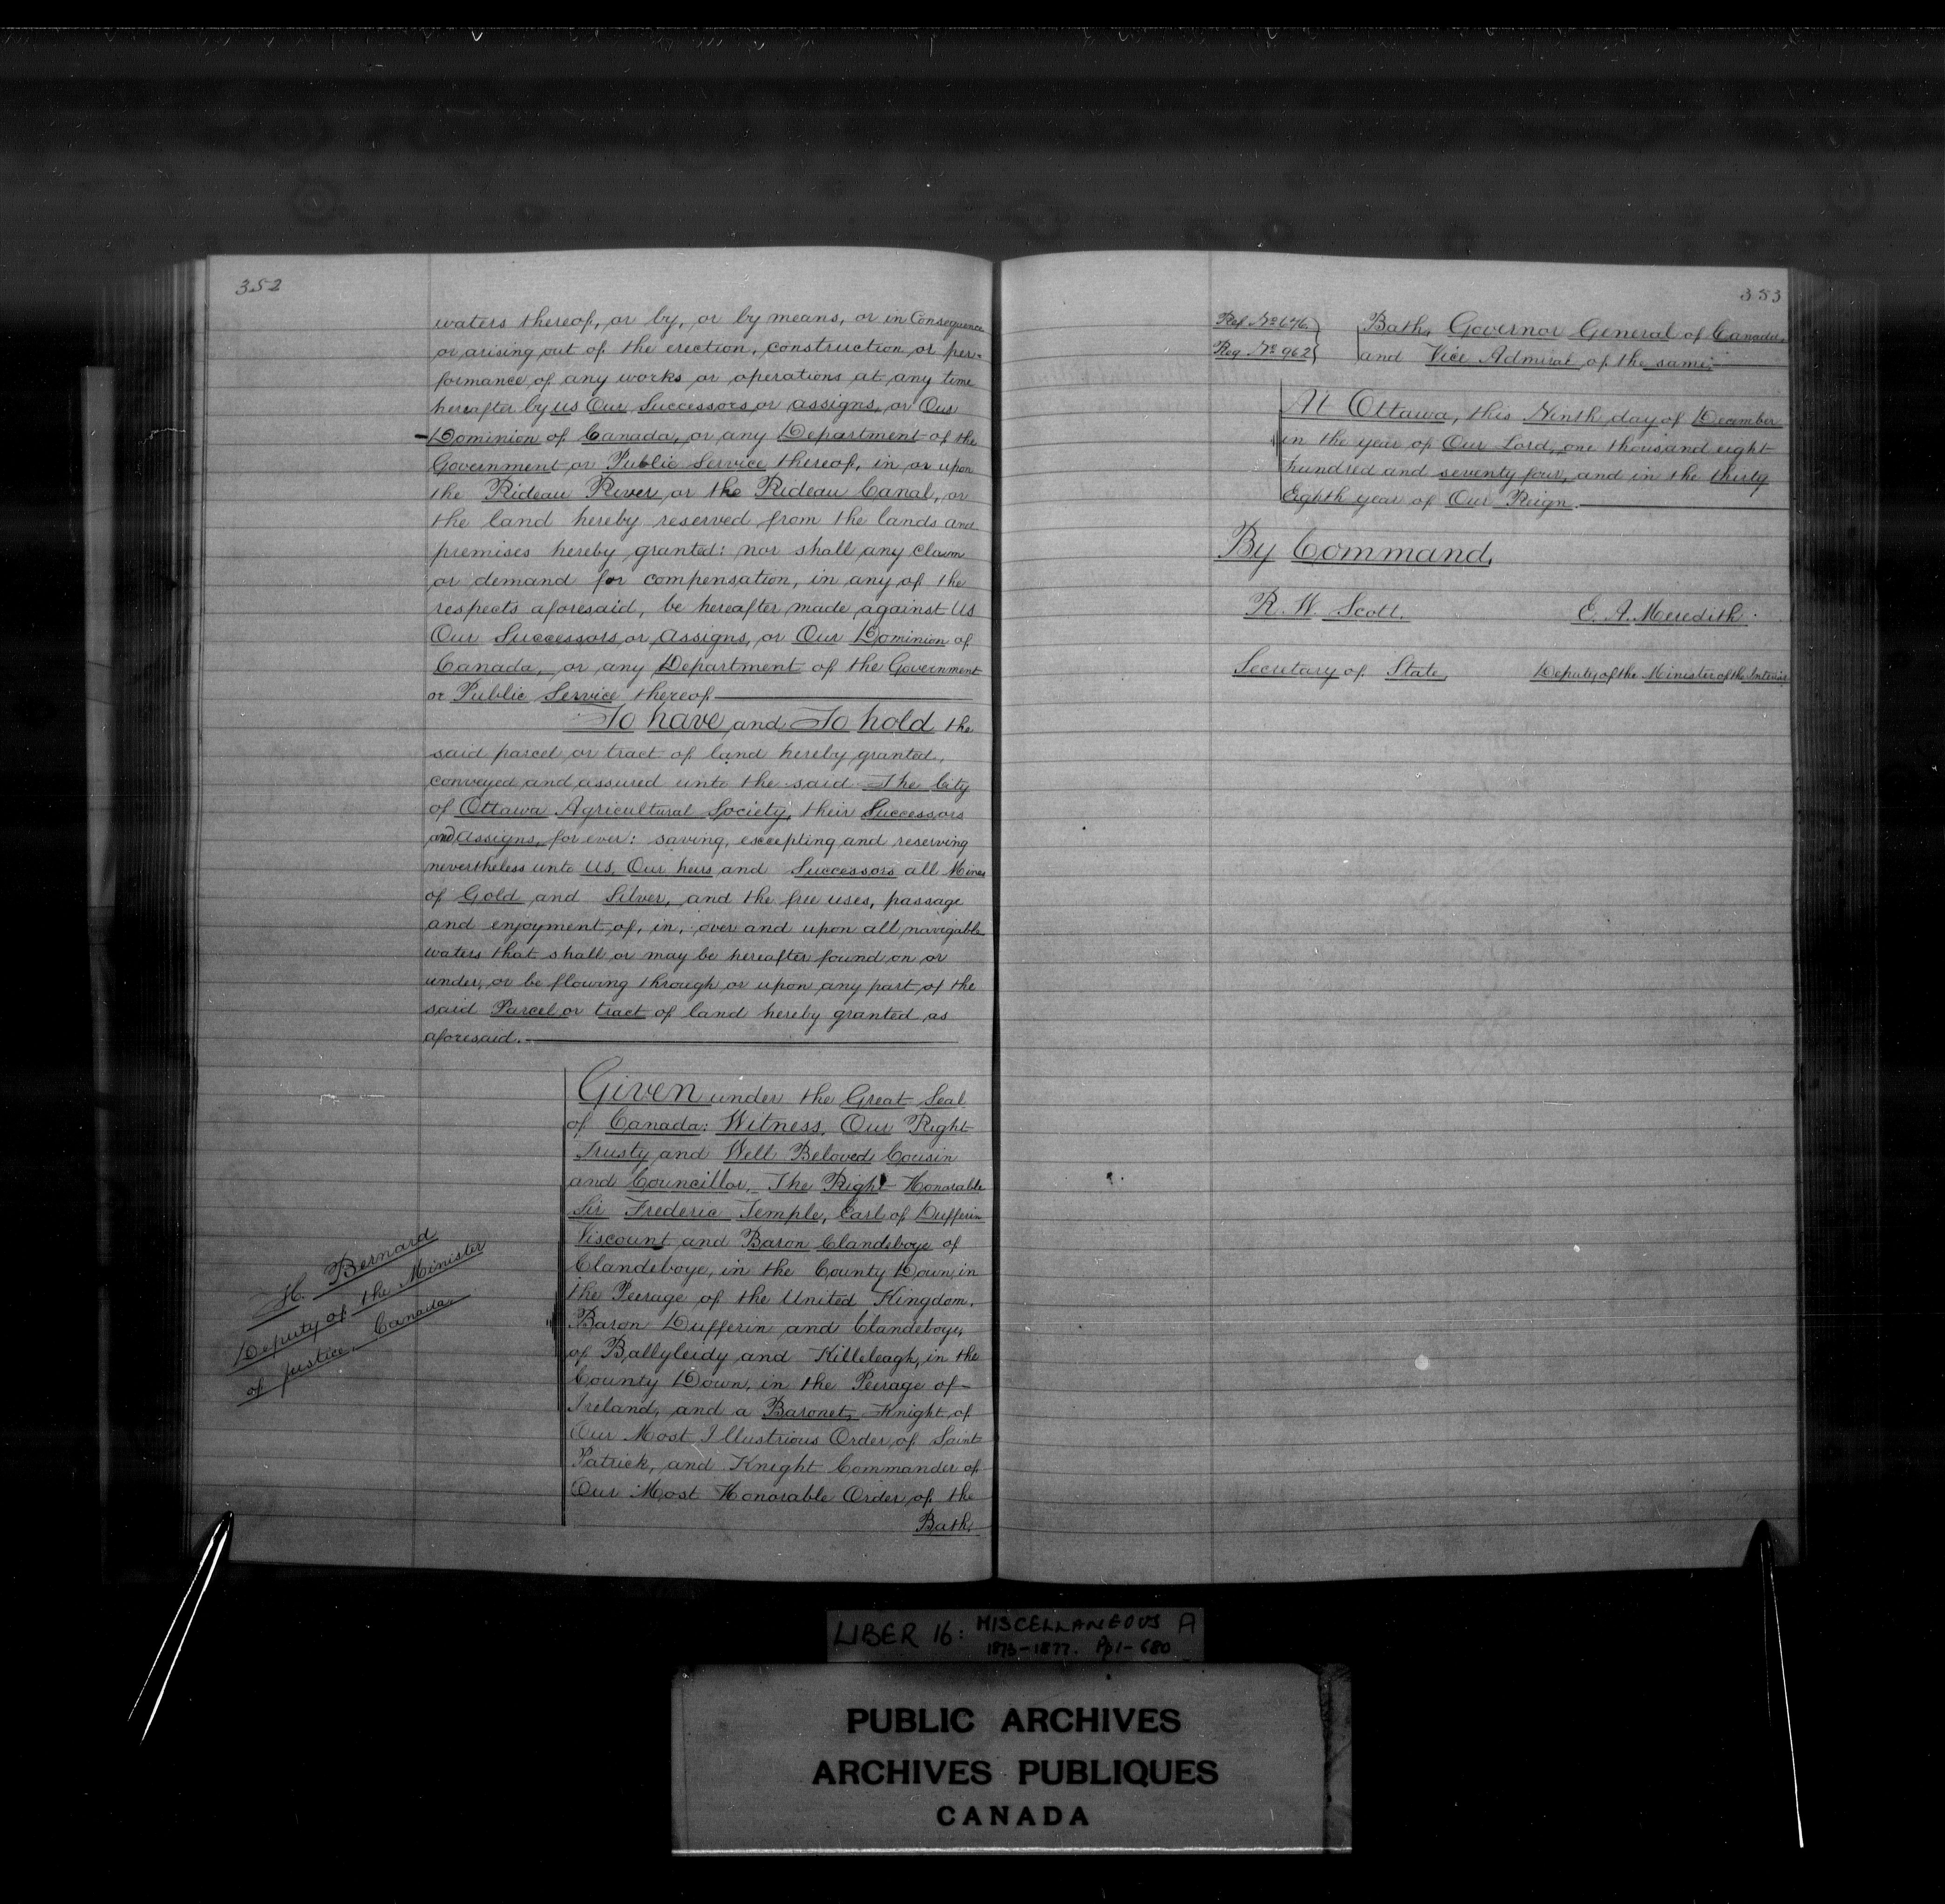 352
waters thereof, or by, or by means, or in Consequence
or arising out of the erection, construction or per-
formance of any works or operations at any time
hereafter by us Our Successors or assigns, or Our
Dominion of Canada, or any Department of the
Government or Public Service thereof, in or upon
the Rideau River or the Rideau Canal, or
the land hereby reserved from the lands and
premises hereby granted: nor shall any claim
or demand for compensation, in any of the
respects aforesaid, be hereafter made against us
Our Successors or Assigns, or Our Dominion of
Canada, or any Department of the Government
or Public Service thereof
To have and To hold the
said parcel or tract of land hereby granted,
conveyed and assured unto the said The City
of Ottawa Agricultural Society, their Successors
and assigns, for ever: saving, excepting and reserving
nevertheless unto Us, Our heirs and Successors all Mines
of Gold and Silver, and the free uses, passage
and enjoyment of, in, over and upon all navigable
waters that shall or may be hereafter found on or
under, or be flowing through or upon any part of the
said Parcel or tract of land hereby granted as
aforesaid.
Given under the Great Seal
of Canada: Witness, Our Right
Trusty and Well Beloved Cousin
and Councillor, The Right Honorable
Sir Frederic Temple, Earl of Dufferin
Viscount and Baron Clandeboye of
Clandeboye, in the County Down, in
the Peerage of the United Kingdom,
Baron Dufferin and Clandeboye,
of Ballyleidy and Killeleagh, in the
County Down, in the Peerage of
Ireland, and a Baronet, Knight of
Our Most Illustrious Order of Saint
Patrick, and Knight Commander of
Our Most Honorable Order of the
Bath.
H. Bernard
Deputy of the Minister
of Justice, Canada
353
Ref. No 676.
Reg No 962
Bath, Governor General of Canada,
and Vice Admiral of the same.
At Ottawa, this Ninth day of December
in the year of Our Lord, one thousand eight
hundred and seventy four, and in the thirty
Eighth year of Our Reign.
By Command,
R. W. Scott. E. A. Meredith.
Secretary of State, Deputy of the Minister of the Interior
LIBER 16: MISCELLANEOUS A
1873-1877. Pp 1-680
PUBLIC ARCHIVES
ARCHIVES PUBLIQUES
CANADA